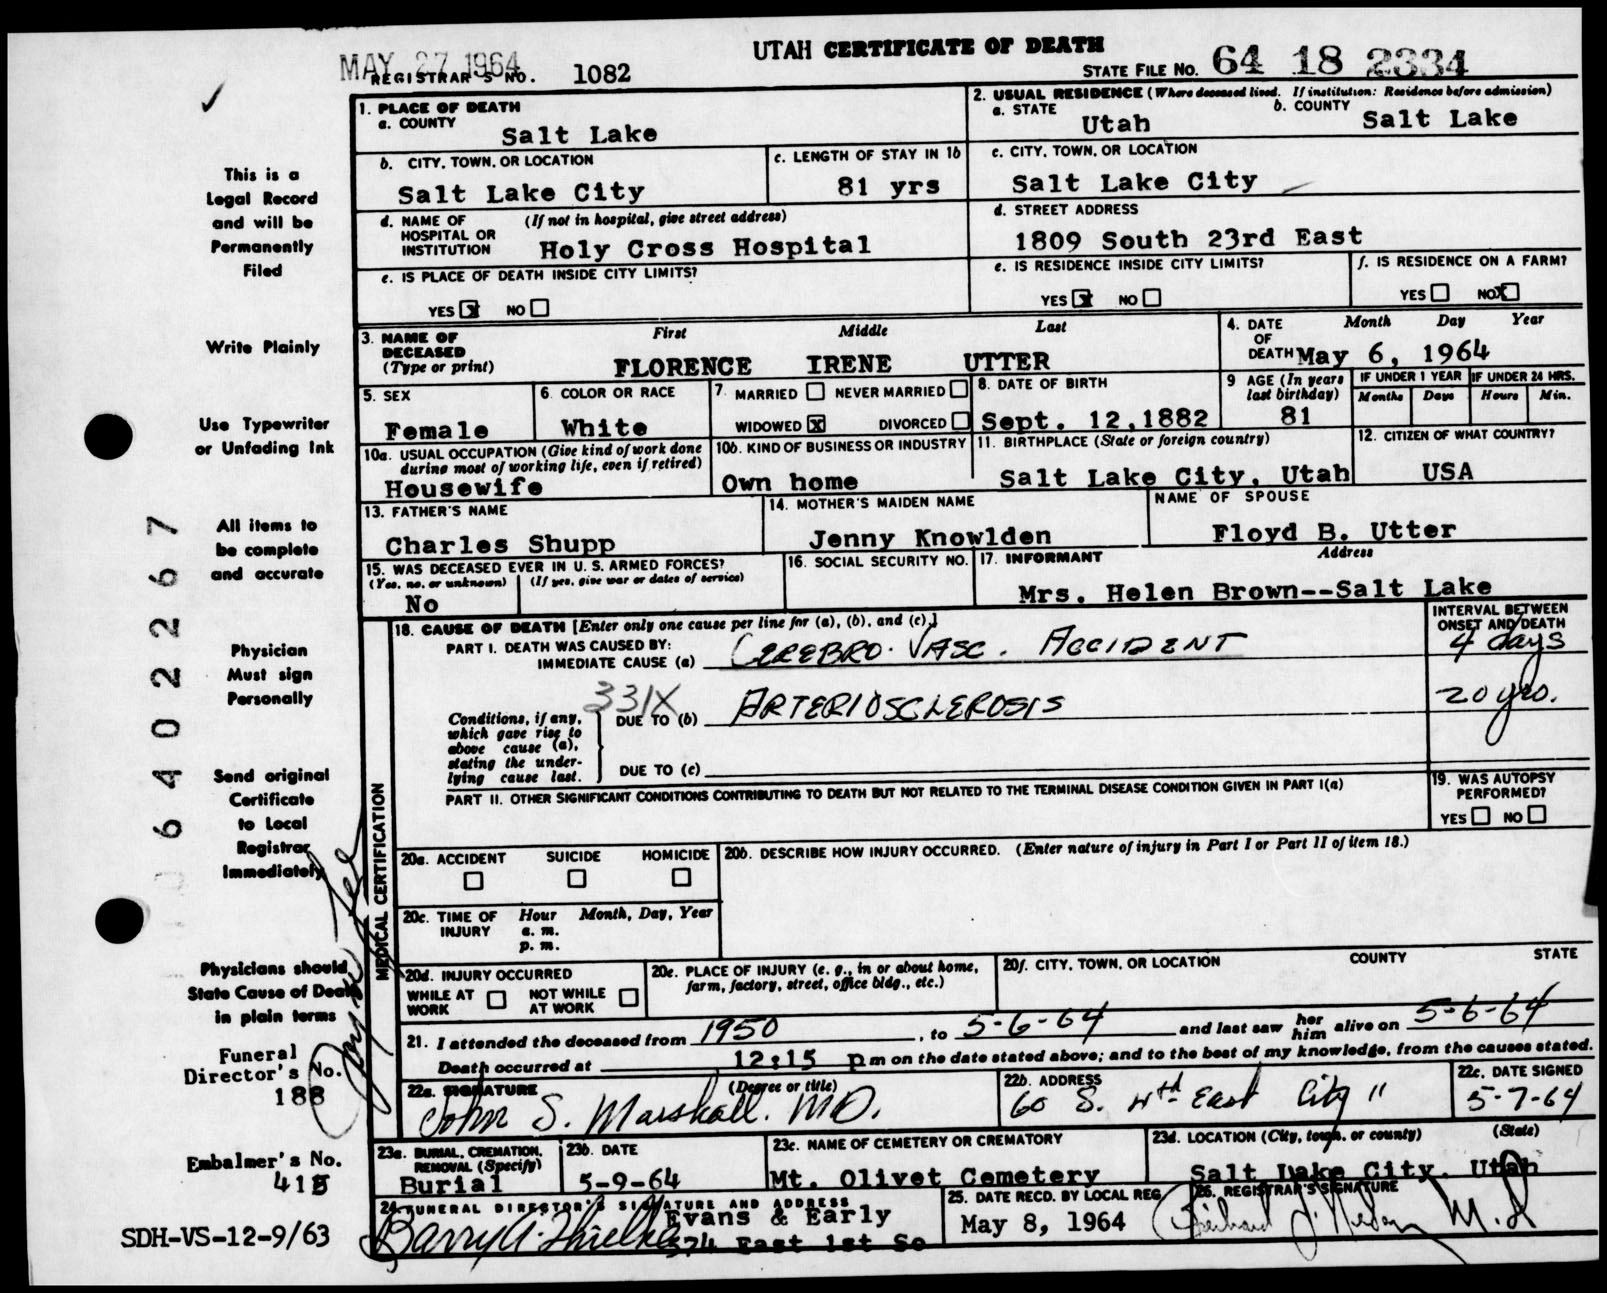 UTAH CERTIFICATE OF DEATH
MAY 27 1964
REGISTRAR'S NO. 1082
STATE FILE NO. 64 18 2334
1. PLACE OF DEATH
a. COUNTY
Salt Lake
2. USUAL RESIDENCE (Where deceased lived. If institution: Residence before admission)
a. STATE
Utah
b. COUNTY
Salt Lake
b. CITY, TOWN, OR LOCATION
Salt Lake City
c. LENGTH OF STAY IN 1b
81 yrs
c. CITY, TOWN, OR LOCATION
Salt Lake City
d. NAME OF HOSPITAL OR INSTITUTION
(If not in hospital, give street address)
Holy Cross Hospital
d. STREET ADDRESS
1809 South 23rd East
e. IS PLACE OF DEATH INSIDE CITY LIMITS?
YES X NO
e. IS RESIDENCE INSIDE CITY LIMITS?
YES X NO
f. IS RESIDENCE ON A FARM?
YES NO X
3. NAME OF DECEASED (Type or print)
First Middle Last
FLORENCE IRENE UTTER
4. DATE OF DEATH
Month Day Year
May 6, 1964
5. SEX
Female
6. COLOR OR RACE
White
7. MARRIED NEVER MARRIED
WIDOWED X DIVORCED
8. DATE OF BIRTH
Sept. 12,1882
9 AGE (In years last birthday)
81
IF UNDER 1 YEAR
Months Days
IF UNDER 24 HRS.
Hours Min.
10a. USUAL OCCUPATION (Give kind of work done during most of working life, even if retired)
Housewife
10b. KIND OF BUSINESS OR INDUSTRY
Own home
11. BIRTHPLACE (State or foreign country)
Salt Lake City, Utah
12. CITIZEN OF WHAT COUNTRY?
USA
13. FATHER'S NAME
Charles Shupp
14. MOTHER'S MAIDEN NAME
Jenny Knowlden
NAME OF SPOUSE
Floyd B. Utter
15. WAS DECEASED EVER IN U. S. ARMED FORCES?
(Yes, no, or unknown) (If yes, give war or dates of service)
No
16. SOCIAL SECURITY NO.
17. INFORMANT Address
Mrs. Helen Brown--Salt Lake
MEDICAL CERTIFICATION
18. CAUSE OF DEATH [Enter only one cause per line for (a), (b), and (c).]
INTERVAL BETWEEN ONSET AND DEATH
PART I. DEATH WAS CAUSED BY:
IMMEDIATE CAUSE (a) CEREBRO. VASC. ACCIDENT
4 days
331X
Conditions, if any, which gave rise to above cause (a), stating the underlying cause last.
DUE TO (b) ARTERIOSCLEROSIS
20 yrs.
DUE TO (c)
PART II. OTHER SIGNIFICANT CONDITIONS CONTRIBUTING TO DEATH BUT NOT RELATED TO THE TERMINAL DISEASE CONDITION GIVEN IN PART I(a)
19. WAS AUTOPSY PERFORMED?
YES NO
20a. ACCIDENT SUICIDE HOMICIDE
20b. DESCRIBE HOW INJURY OCCURRED. (Enter nature of injury in Part I or Part II of item 18.)
20c. TIME OF INJURY
Hour Month, Day, Year
a. m.
p. m.
20d. INJURY OCCURRED
WHILE AT WORK NOT WHILE AT WORK
20e. PLACE OF INJURY (e. g., in or about home, farm, factory, street, office bldg., etc.)
20f. CITY, TOWN, OR LOCATION COUNTY STATE
21. I attended the deceased from 1950, to 5-6-64 and last saw her him alive on 5-6-64
Death occurred at 12:15 p m on the date stated above; and to the best of my knowledge, from the causes stated.
22a. SIGNATURE (Degree or title)
John S. Marshall. MD.
22b. ADDRESS
60 S. 4th East City 11
22c. DATE SIGNED
5-7-64
23a. BURIAL, CREMATION, REMOVAL (Specify)
Burial
23b. DATE
5-9-64
23c. NAME OF CEMETERY OR CREMATORY
Mt. Olivet Cemetery
23d. LOCATION (City, town, or county) (State)
Salt Lake City, Utah
24. FUNERAL DIRECTOR'S SIGNATURE AND ADDRESS
Evans & Early
574 East 1st So
25. DATE RECD. BY LOCAL REG.
May 8, 1964
26. REGISTRAR'S SIGNATURE
M.D
This is a
Legal Record
and will be
Permanently
Filed
Write Plainly
Use Typewriter
or Unfading Ink
All items to
be complete
and accurate
Physician
Must sign
Personally
Send original
Certificate
to Local
Registrar
Immediately
Physicians should
State Cause of Death
in plain terms
Funeral
Director's No.
188
Embalmer's No.
415
SDH-VS-12-9/63
6402267